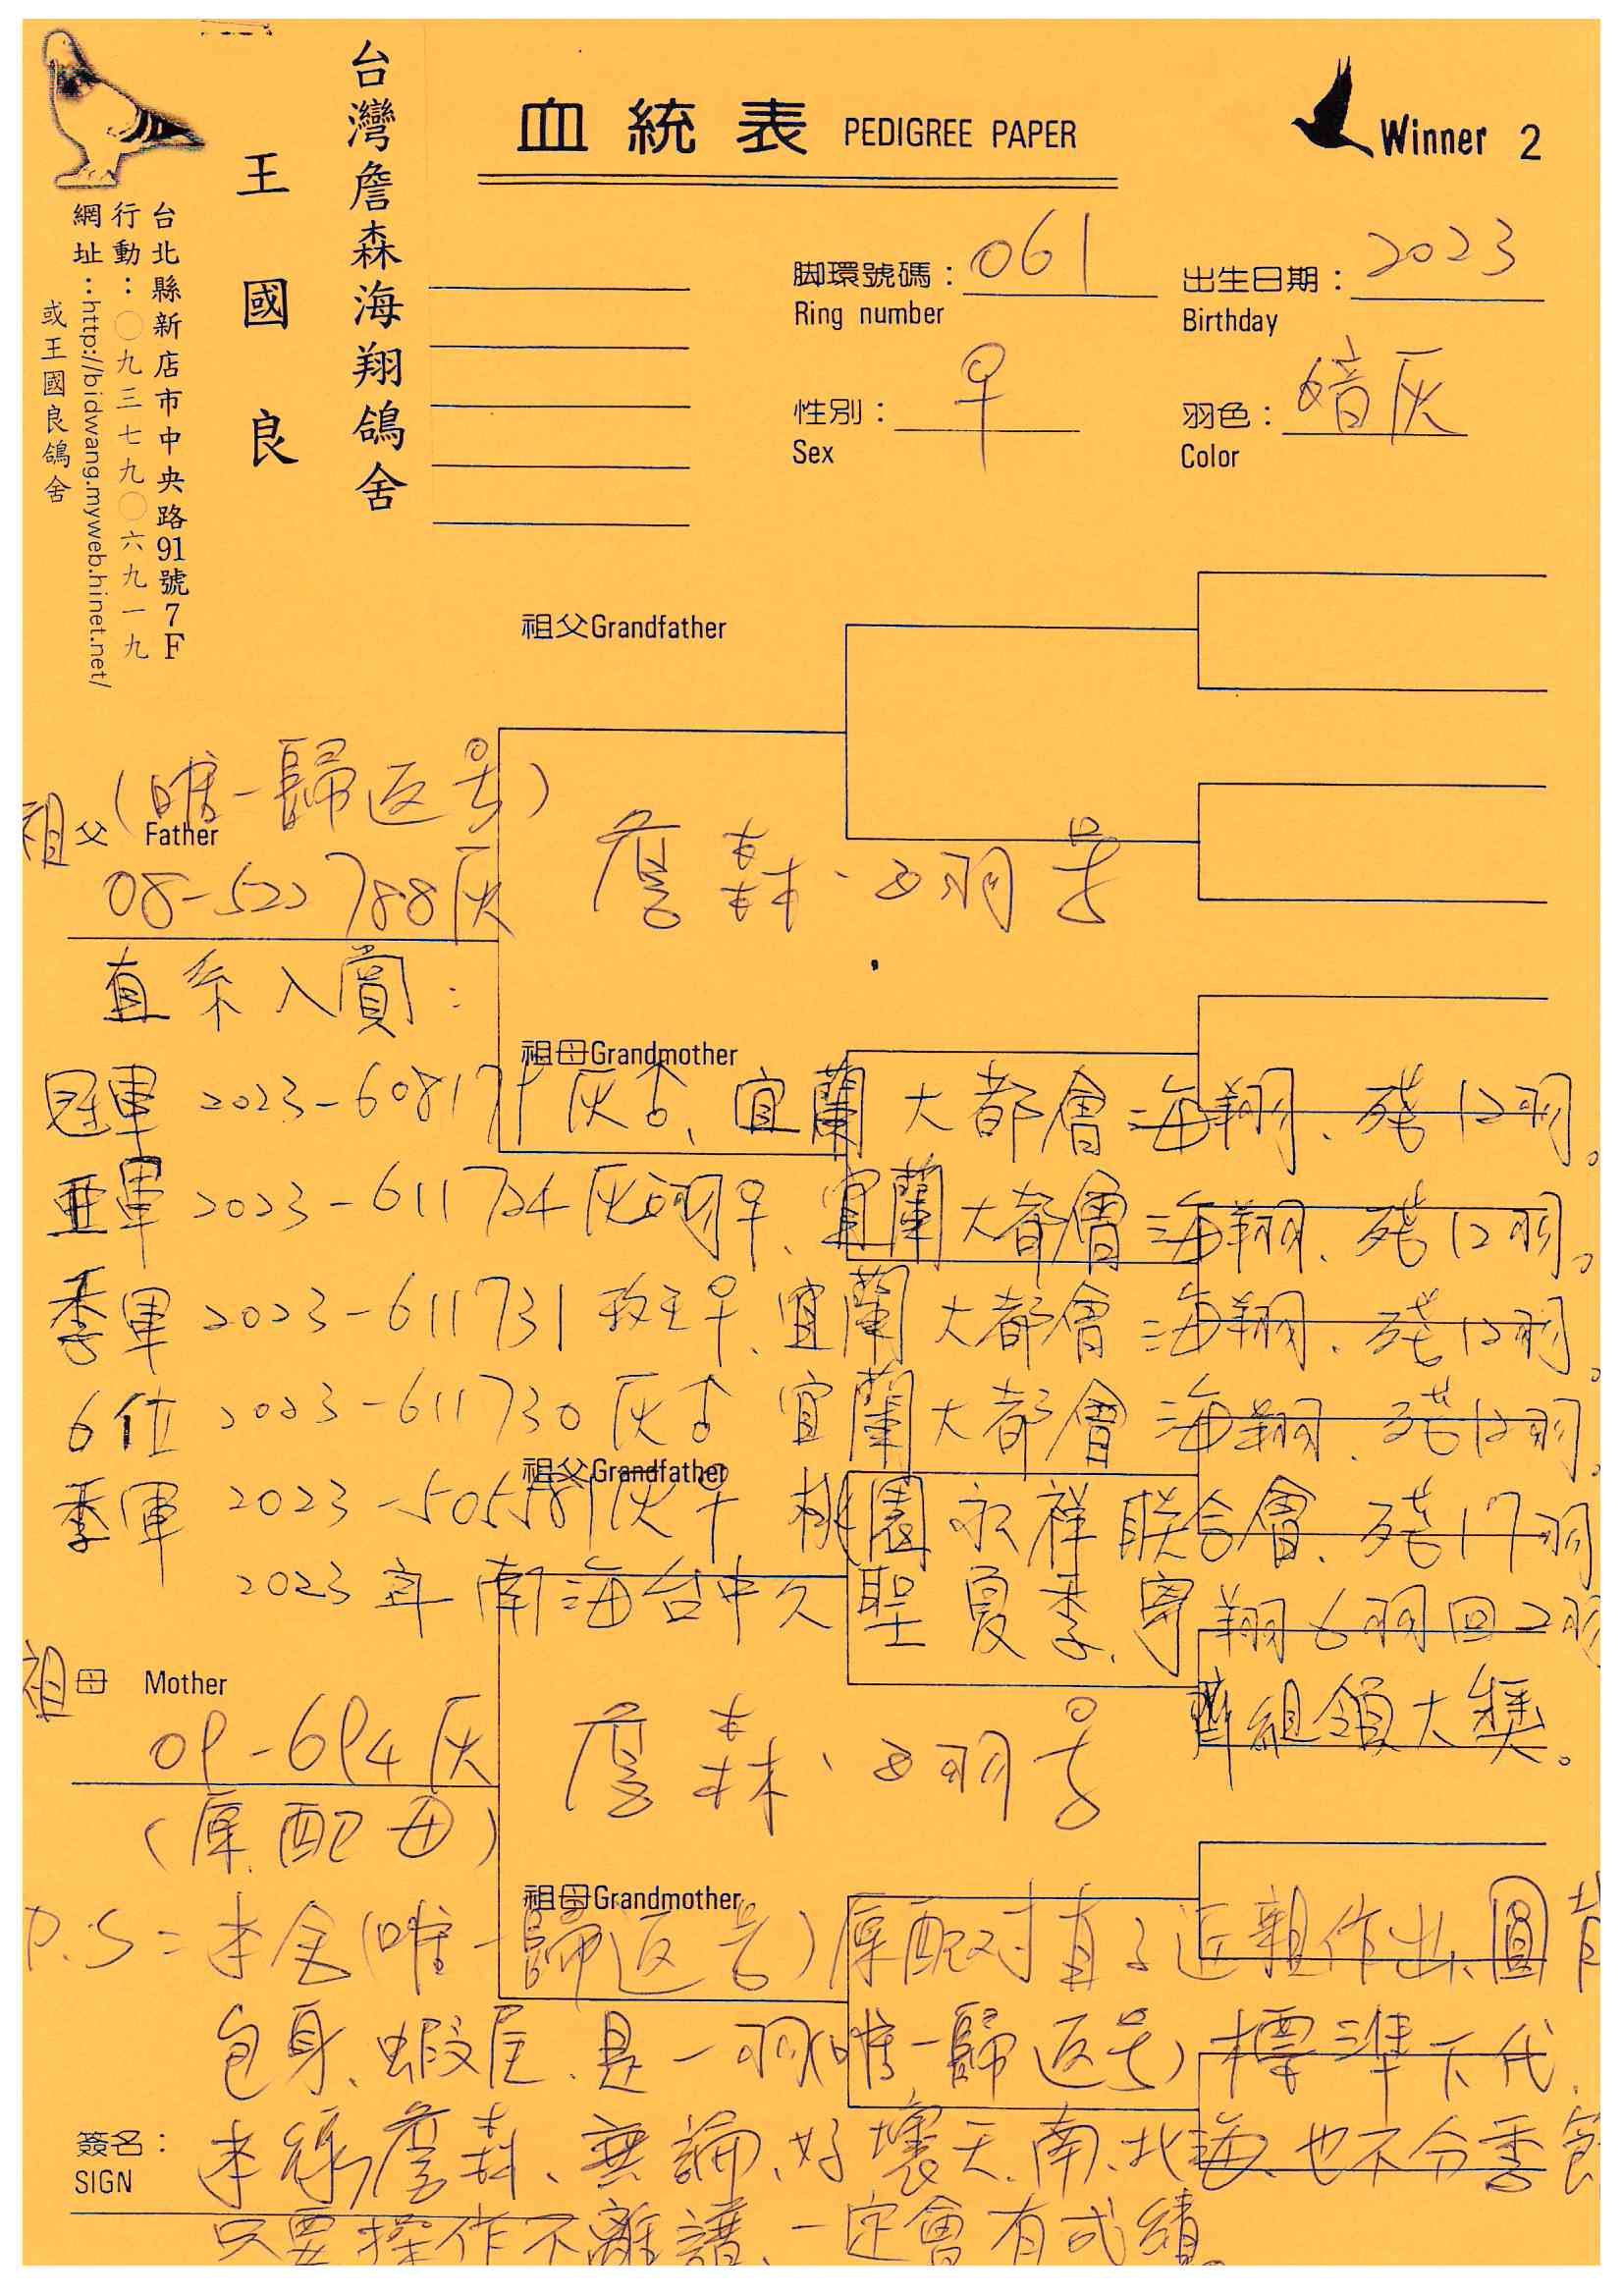 台灣詹森海翔鴿舍
王國良
台北縣新店市中央路91號7F
行動：○九三七九○六九一九
網址：http://bidwang.myweb.hinet.net/
或王國良鴿舍
血統表 PEDIGREE PAPER
Winner 2
脚環號碼： 061
Ring number
出生日期： 2023
Birthday
性別： ♀
Sex
羽色： 暗灰
Color
祖父Grandfather
(唯一歸返号)
祖父 Father
08-522788灰
詹森、四羽号
直系入賞：
祖母Grandmother
冠軍 2023-608171灰♂、宜蘭大都會海翔、残12羽。
亜軍 2023-611724灰白羽♀、宜蘭大都會海翔、残12羽。
季軍 2023-611731 斑主♀、宜蘭大都會海翔、残12羽。
6位 2023-611730 灰♂ 宜蘭大都會海翔、残12羽。
祖父Grandfather
季軍 2023-505581灰♀ 桃園永祥联合會、残17羽
2023年南海台中久聖夏季、寄翔6羽回2羽
齊組領大獎。
祖母 Mother
09-694灰
詹森、四羽号
(原配母)
祖母Grandmother
P.S = 本舍(唯一歸返号)原配对直子近親作出、圓背
包身、蝦尾、是一羽(唯一歸返号)標準下代、
簽名：
SIGN
本線詹森、無論、好壞天、南、北海、也不分季節
只要操作不離譜、一定會有成績。